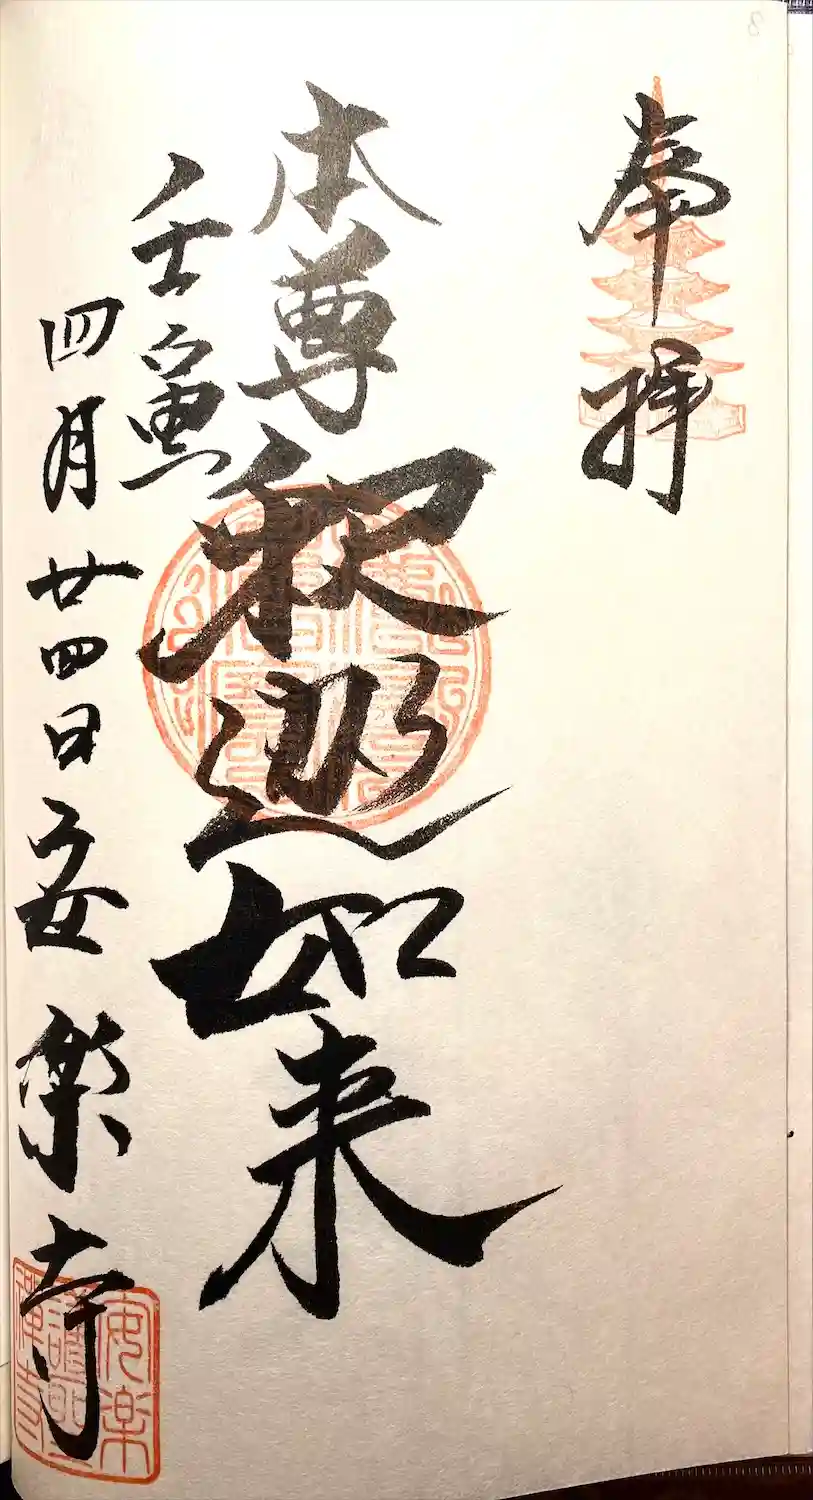 奉拝
本尊釈迦如来
壬寅
四月廿四日安楽寺
安楽
護聖
禅寺